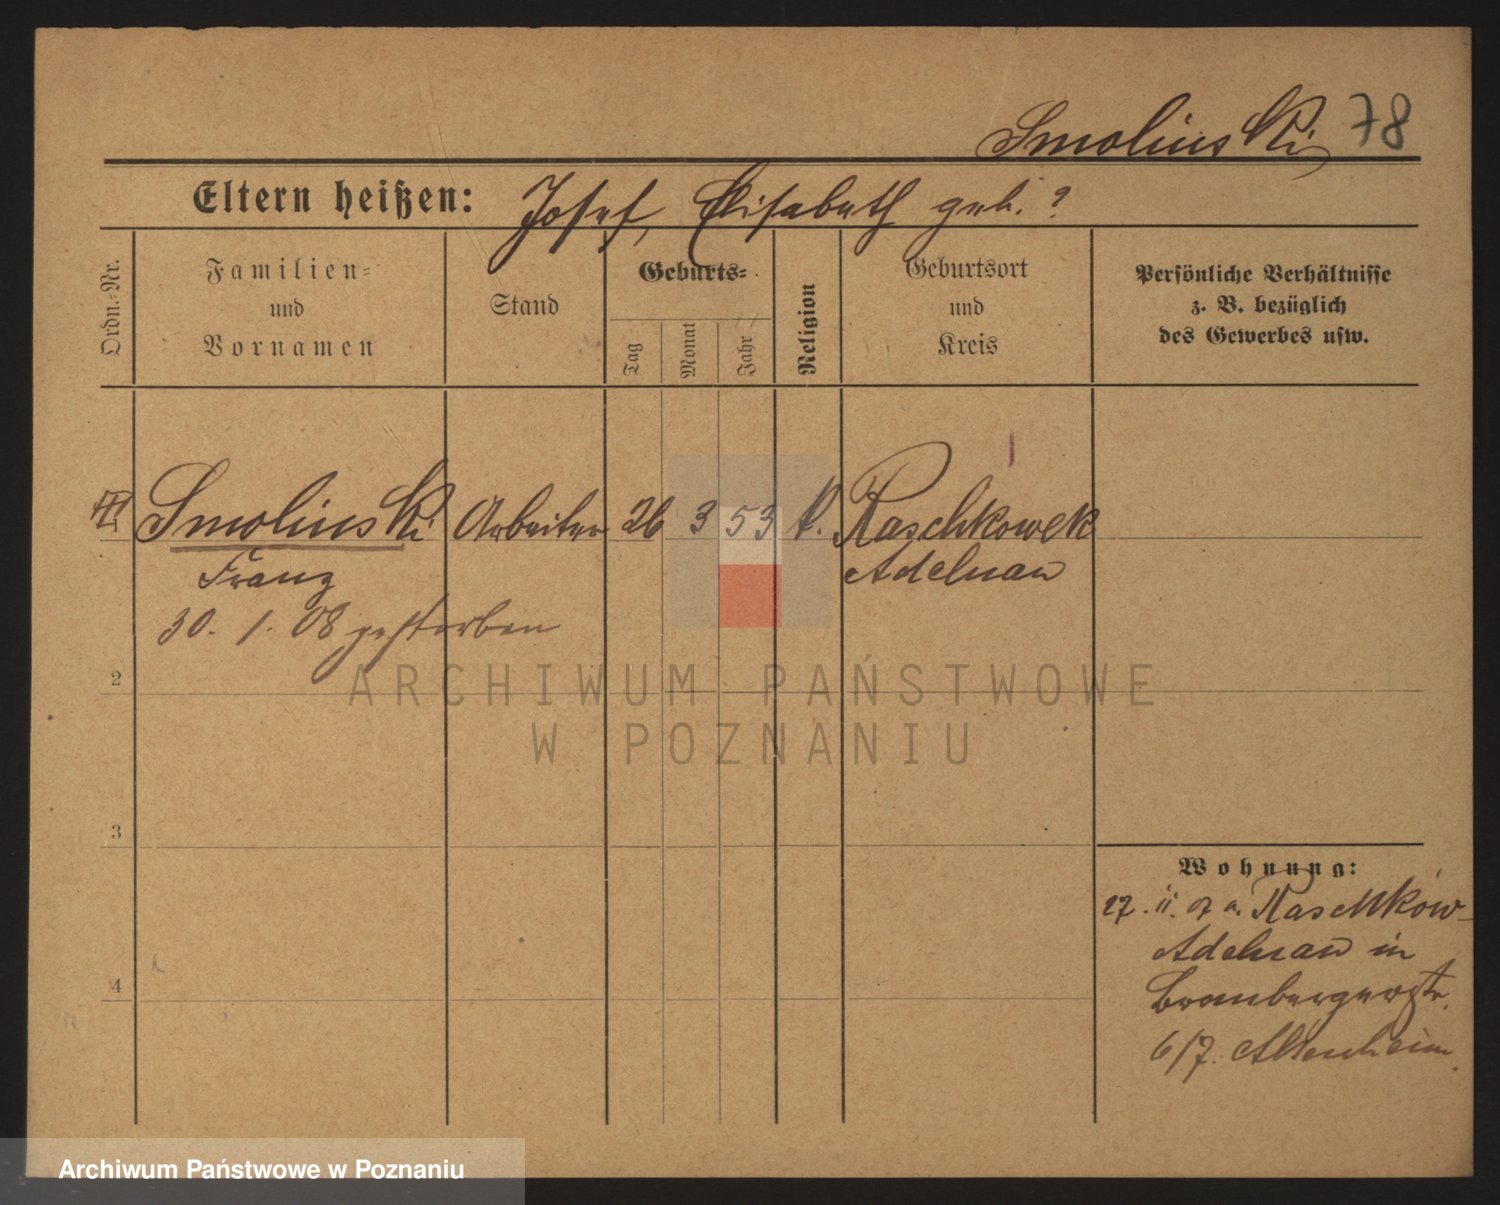 Smolinski 78
Eltern heißen: Josef, Elisabeth geb. ?
Ordn.-Nr.
Familien- und Vornamen
Stand
Geburts-
Tag
Monat
Jahr
Religion
Geburtsort und Kreis
Persönliche Verhältnisse
z. B. bezüglich
des Gewerbes usw.
1 Smolinski Arbeiter 26 3 53 k. Raschkowek
Franz Adelnau
30. 1. 08 gestorben
2
3
4
Wohnung:
27. 11. 07 a. Raschkow-
Adelnau in
Brombergerstr.
6/7. Altenheim
ARCHIWUM PAŃSTWOWE
W POZNANIU
Archiwum Państwowe w Poznaniu